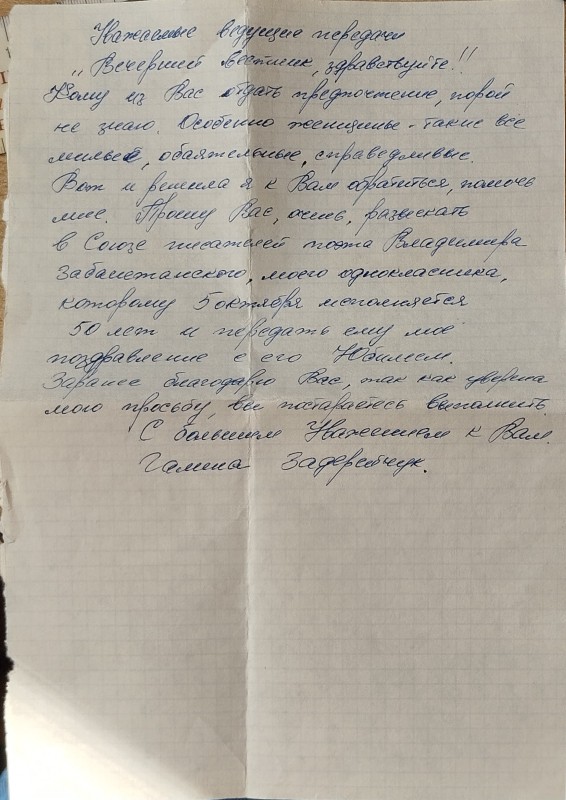 Уважаемые ведущие передачи
„Вечерний вестник, здравствуйте!!
Кому из Вас отдать предпочтение, порой
не знаю. Особенно женщины - такие все
милые, обаятельные, справедливые.
Вот и решила я к Вам обратиться, помочь
мне. Прошу Вас, очень, разыскать
в Союзе писателей поэта Владимира
Забаштанского, моего однокласника,
которому 5 октября исполняется
50 лет и передать ему моё
поздравление с его Юбилеем.
Заранее благодарю Вас, так как уверена
мою просьбу, вы постараетесь выполнить.
С большим Уважением к Вам.
Галина Задерейчук.